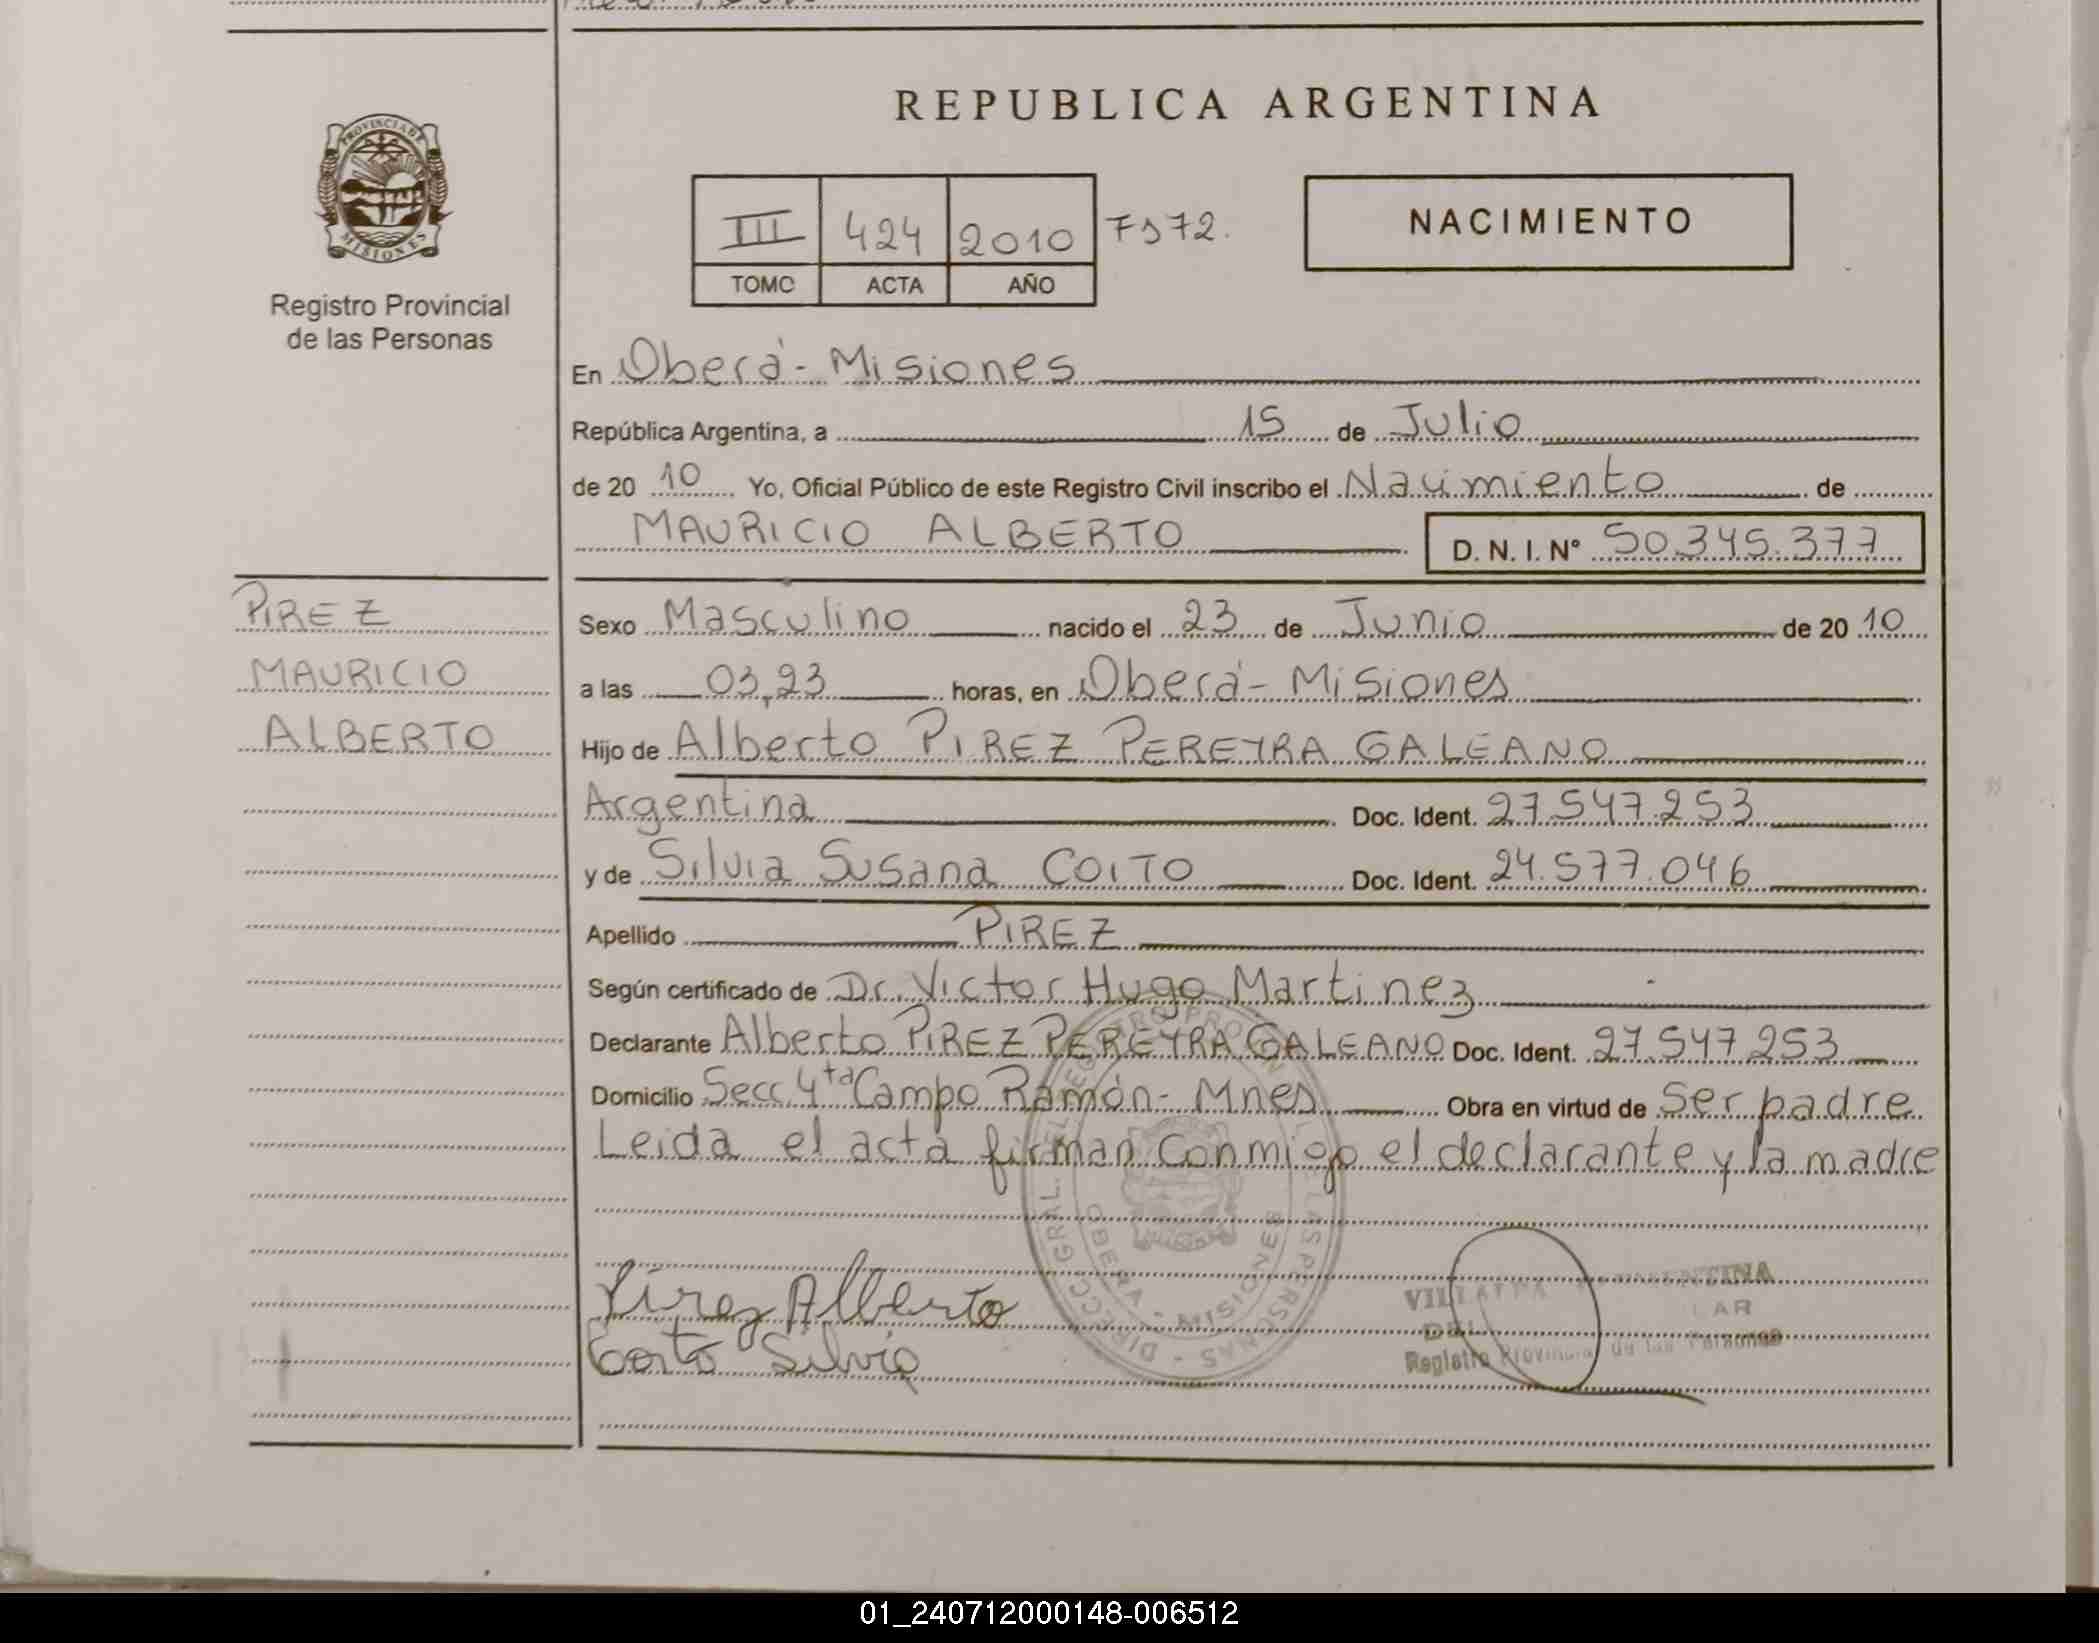 REPUBLICA ARGENTINA
PROVINCIA DE
MISIONES
Registro Provincial
de las Personas
III 424 2010 Fº 72.
TOMO ACTA AÑO
NACIMIENTO
En Oberá - Misiones
República Argentina, a 15 de Julio
de 20 10 Yo, Oficial Público de este Registro Civil inscribo el Nacimiento de
MAURICIO ALBERTO D. N. I. Nº 50.345.377
PIREZ
MAURICIO
ALBERTO
Sexo Masculino nacido el 23 de Junio de 20 10
a las 03,23 horas, en Oberá - Misiones
Hijo de Alberto PIREZ PEREYRA GALEANO
Argentina Doc. Ident. 27.547.253
y de Silvia Susana COITO Doc. Ident. 24.577.046
Apellido PIREZ
Según certificado de Dr. Victor Hugo Martinez
Declarante Alberto PIREZ PEREYRA GALEANO Doc. Ident. 27.547.253
Domicilio Secc. 4ta Campo Ramón - Mnes Obra en virtud de Ser padre
Leida el acta firman conmigo el declarante y la madre
Pirez Alberto
Coito Silvia
DIRECC. GRAL. DEL REGISTRO PROVINCIAL DE LAS PERSONAS
OBERA - MISIONES
Registro Provincial de las Personas
01_240712000148-006512